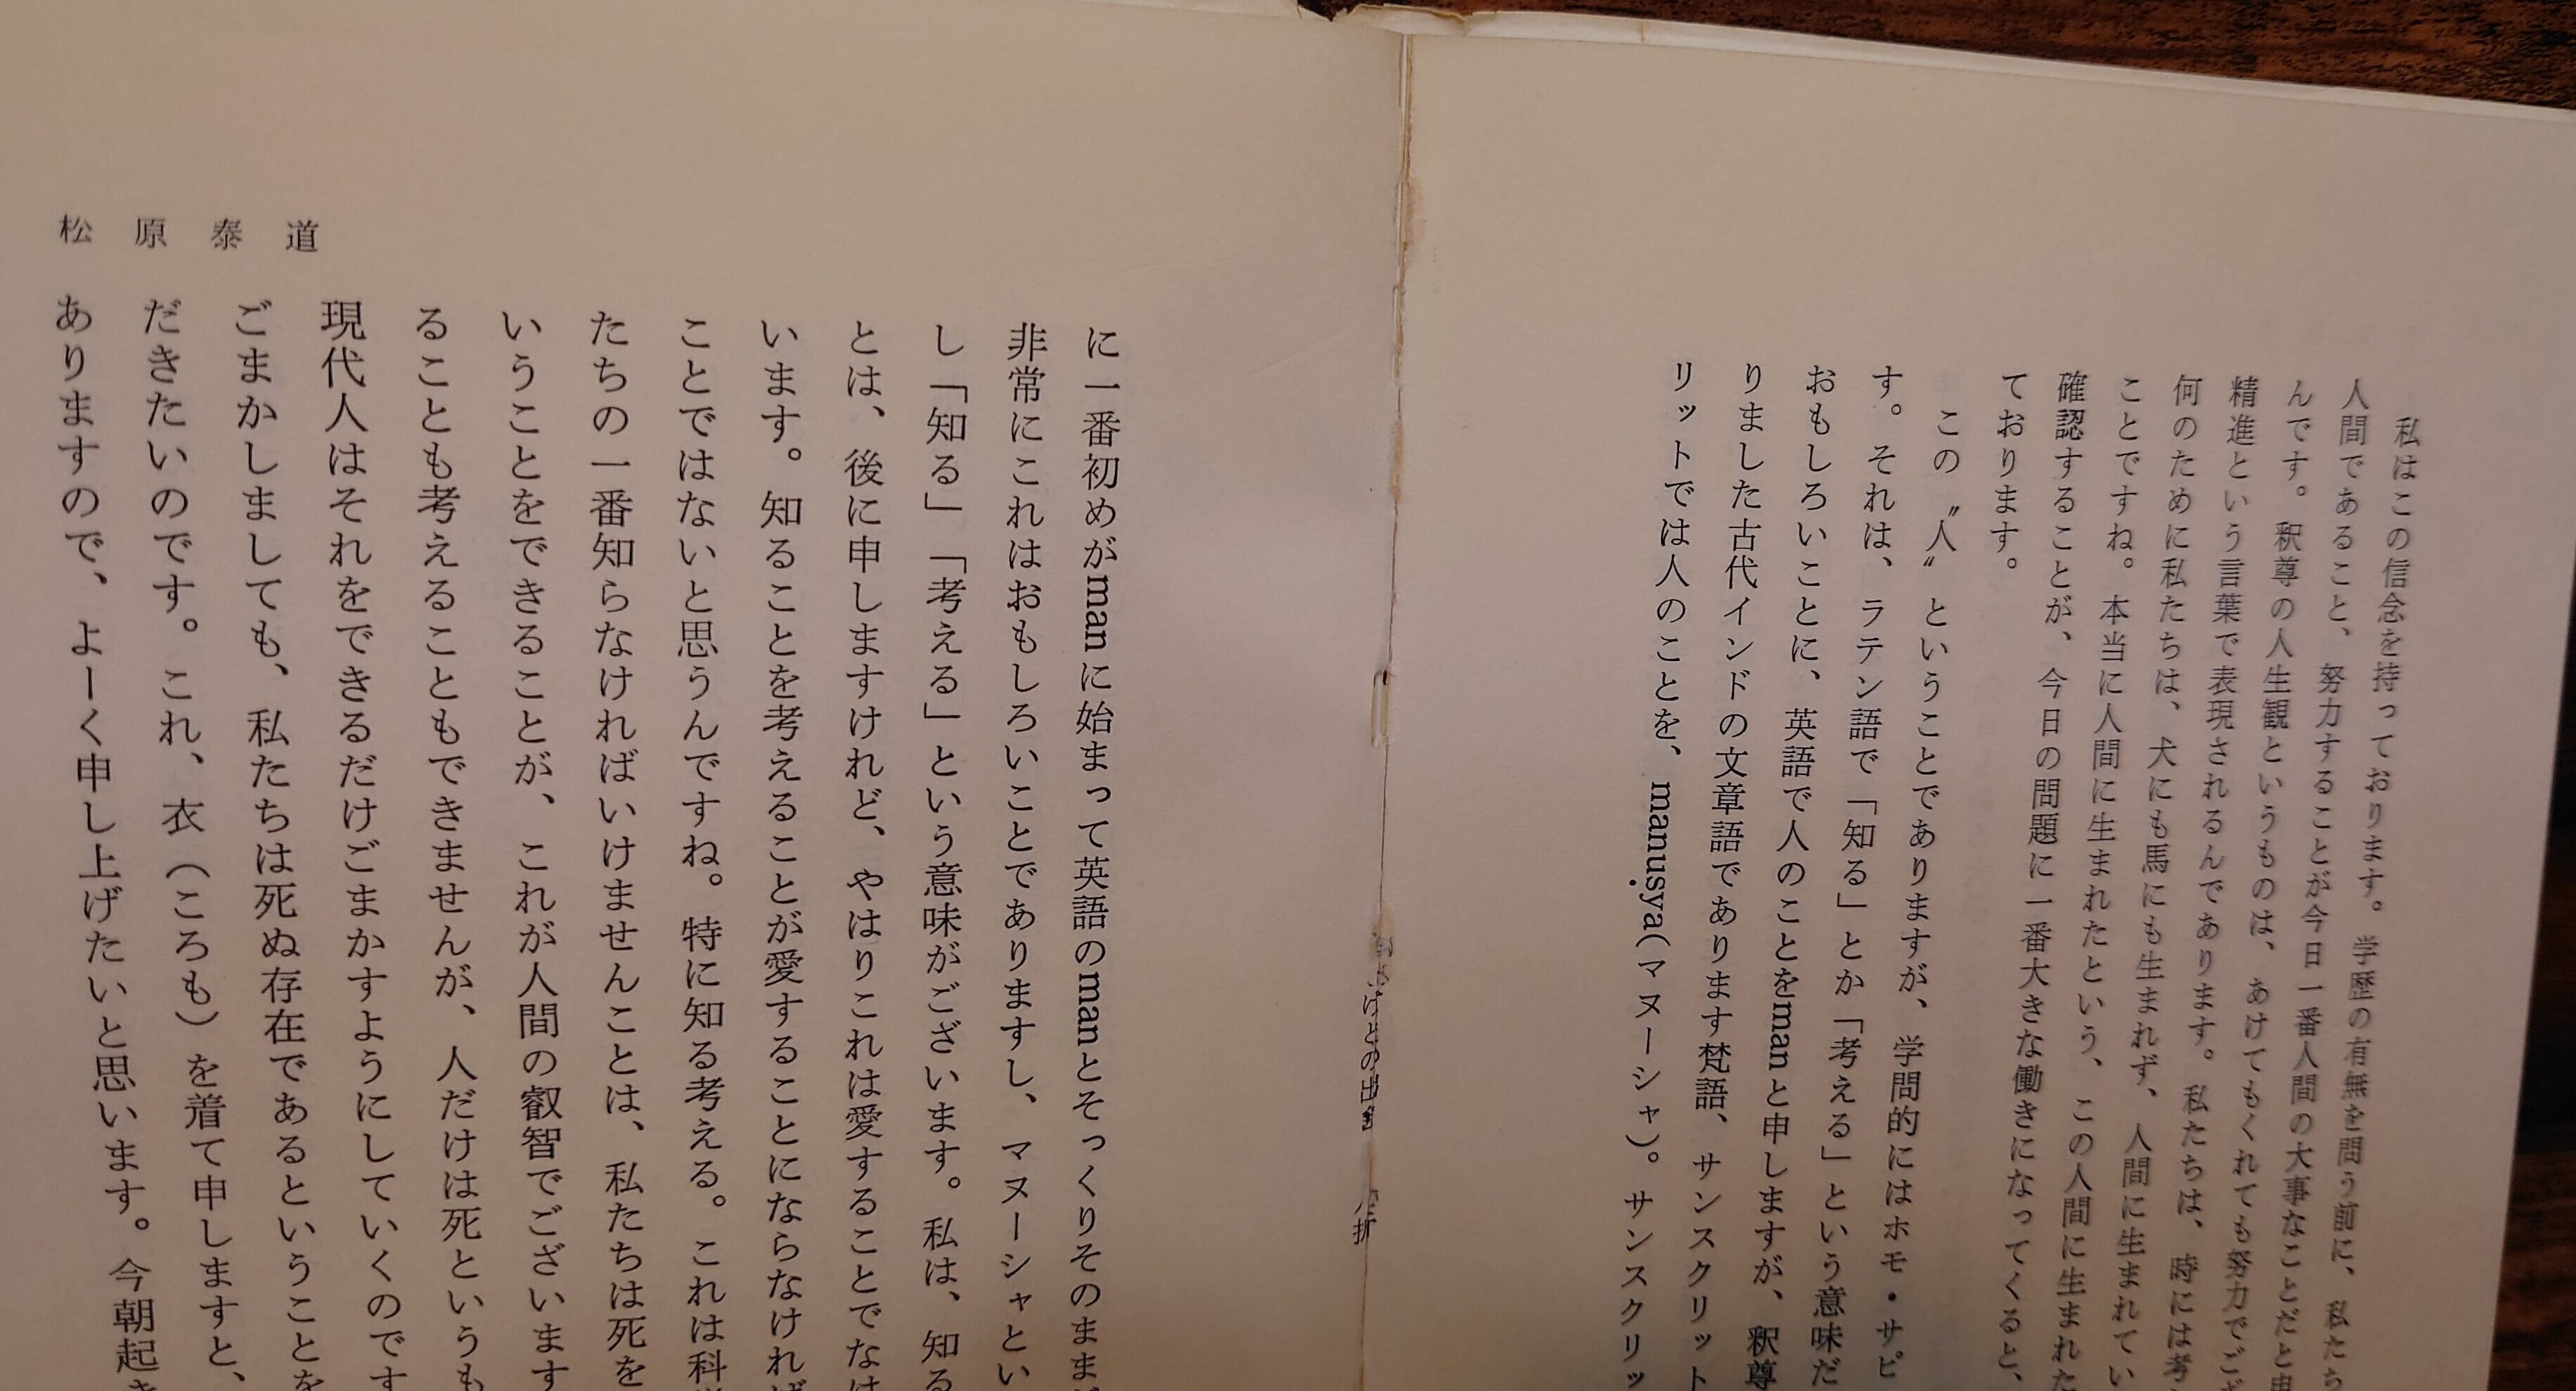 私はこの信念を持っております。学歴の有無を問う前に、私たち
人間であること、努力することが今日一番人間の大事なことだと申
んです。釈尊の人生観というものは、あけてもくれても努力でござ
精進という言葉で表現されるんであります。私たちは、時には考
何のために私たちは、犬にも馬にも生まれず、人間に生まれてい
ことですね。本当に人間に生まれたという、この人間に生まれた
確認することが、今日の問題に一番大きな働きになってくると、
ております。
この〝人〟ということでありますが、学問的にはホモ・サピ
す。それは、ラテン語で「知る」とか「考える」という意味だ
おもしろいことに、英語で人のことをmanと申しますが、釈尊
りました古代インドの文章語であります梵語、サンスクリット
リットでは人のことを、manuṣya(マヌーシャ)。サンスクリッ
けとの出
折
松原泰道
に一番初めがmanに始まって英語のmanとそっくりそのまま
非常にこれはおもしろいことでありますし、マヌーシャとい
し「知る」「考える」という意味がございます。私は、知る
とは、後に申しますけれど、やはりこれは愛することでなけ
います。知ることを考えることが愛することにならなければ
ことではないと思うんですね。特に知る考える。これは科
たちの一番知らなければいけませんことは、私たちは死を
いうことをできることが、これが人間の叡智でございます
ることも考えることもできませんが、人だけは死というも
現代人はそれをできるだけごまかすようにしていくのです
ごまかしましても、私たちは死ぬ存在であるということを
だきたいのです。これ、衣(ころも)を着て申しますと、
ありますので、よーく申し上げたいと思います。今朝起き